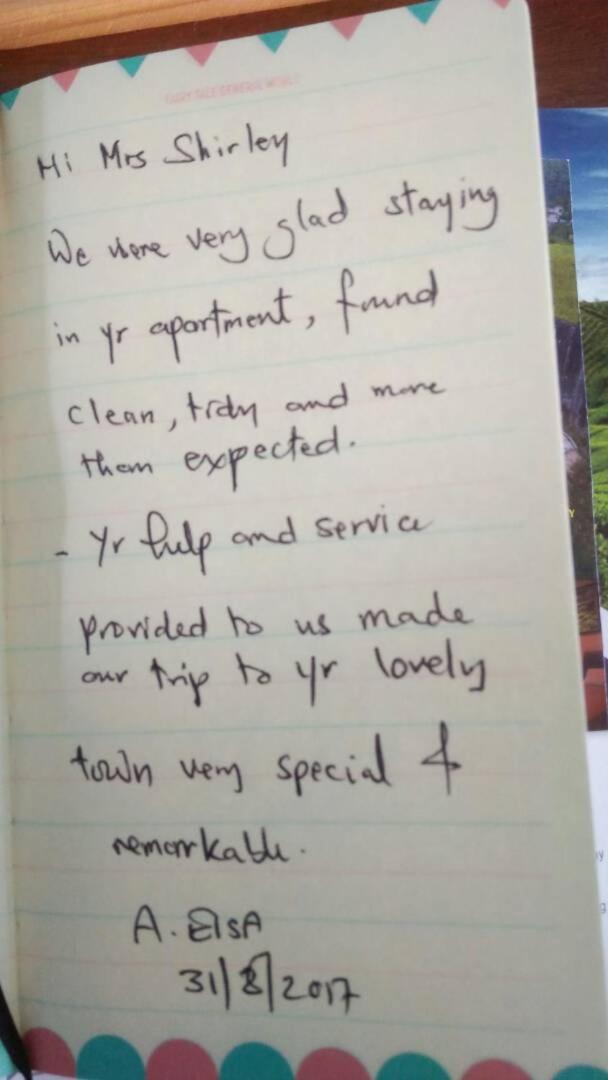 FAIRY TALE GENERAL WORLD
Hi Mrs Shirley
We were very glad staying
in yr apartment, found
clean, tidy and more
them expected.
- yr help and service
provided to us made
our trip to yr lovely
town very special &
remarkable.
A. EISA
31/8/2017